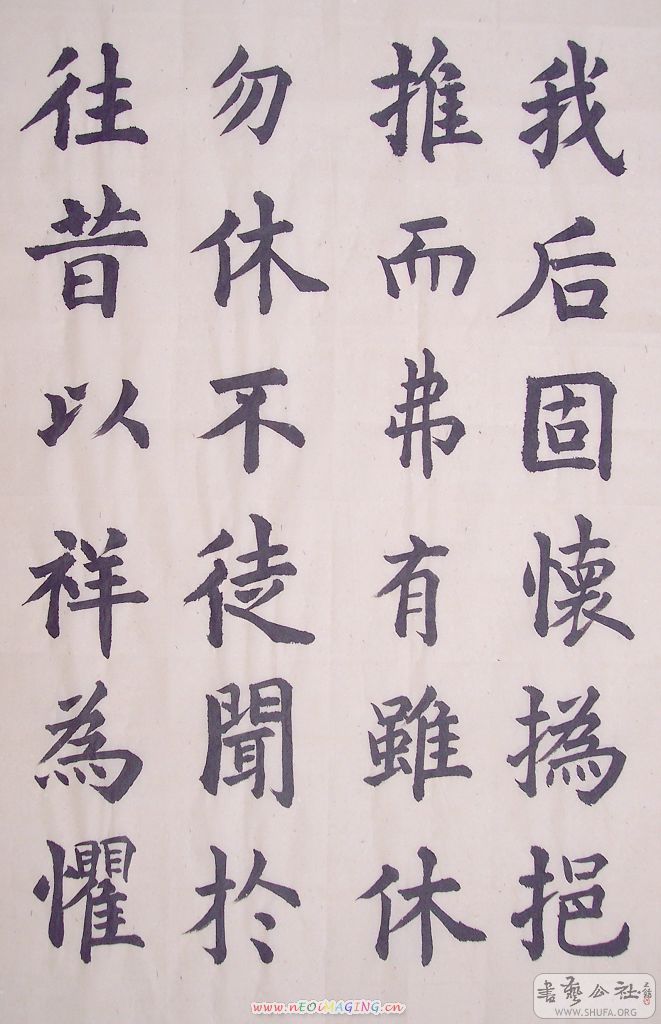 我后固懷撝挹
推而弗有雖休
勿休不徒聞於
往昔以祥為懼
書藝公社
WWW.SHUFA.ORG
www.nEOiMAGING.cn